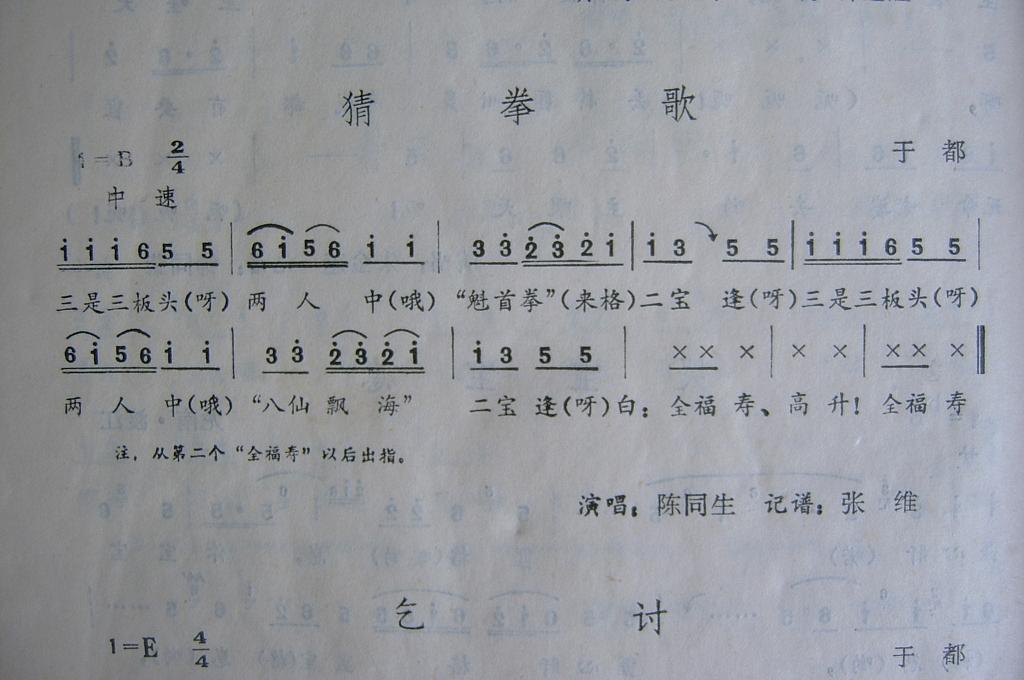 猜 拳 歌
1=B 2/4 于 都
中 速
i i i 6 5 5 | 6 i 5 6 i i | 3 3̇ 2̇ 3̇ 2̇ i | i 3 5 5 | i i i 6 5 5 |
三是三板头(呀) 两 人 中(哦) “魁首拳”(来格)二宝 逢(呀)三是三板头(呀)
6 i 5 6 i i | 3 3̇ 2̇ 3̇ 2̇ i | i 3 5 5 | × × × | × × | × × ×
两 人 中(哦) “八仙 飘 海” 二宝 逢(呀)白：全福 寿、高 升！全福 寿
注，从第二个“全福寿”以后出指。
演唱：陈同生 记谱：张 维
乞 讨
1=E 4/4 于 都